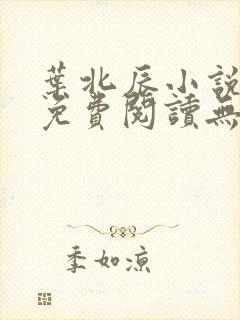 葉北辰小說
免費閱讀無
季如涼